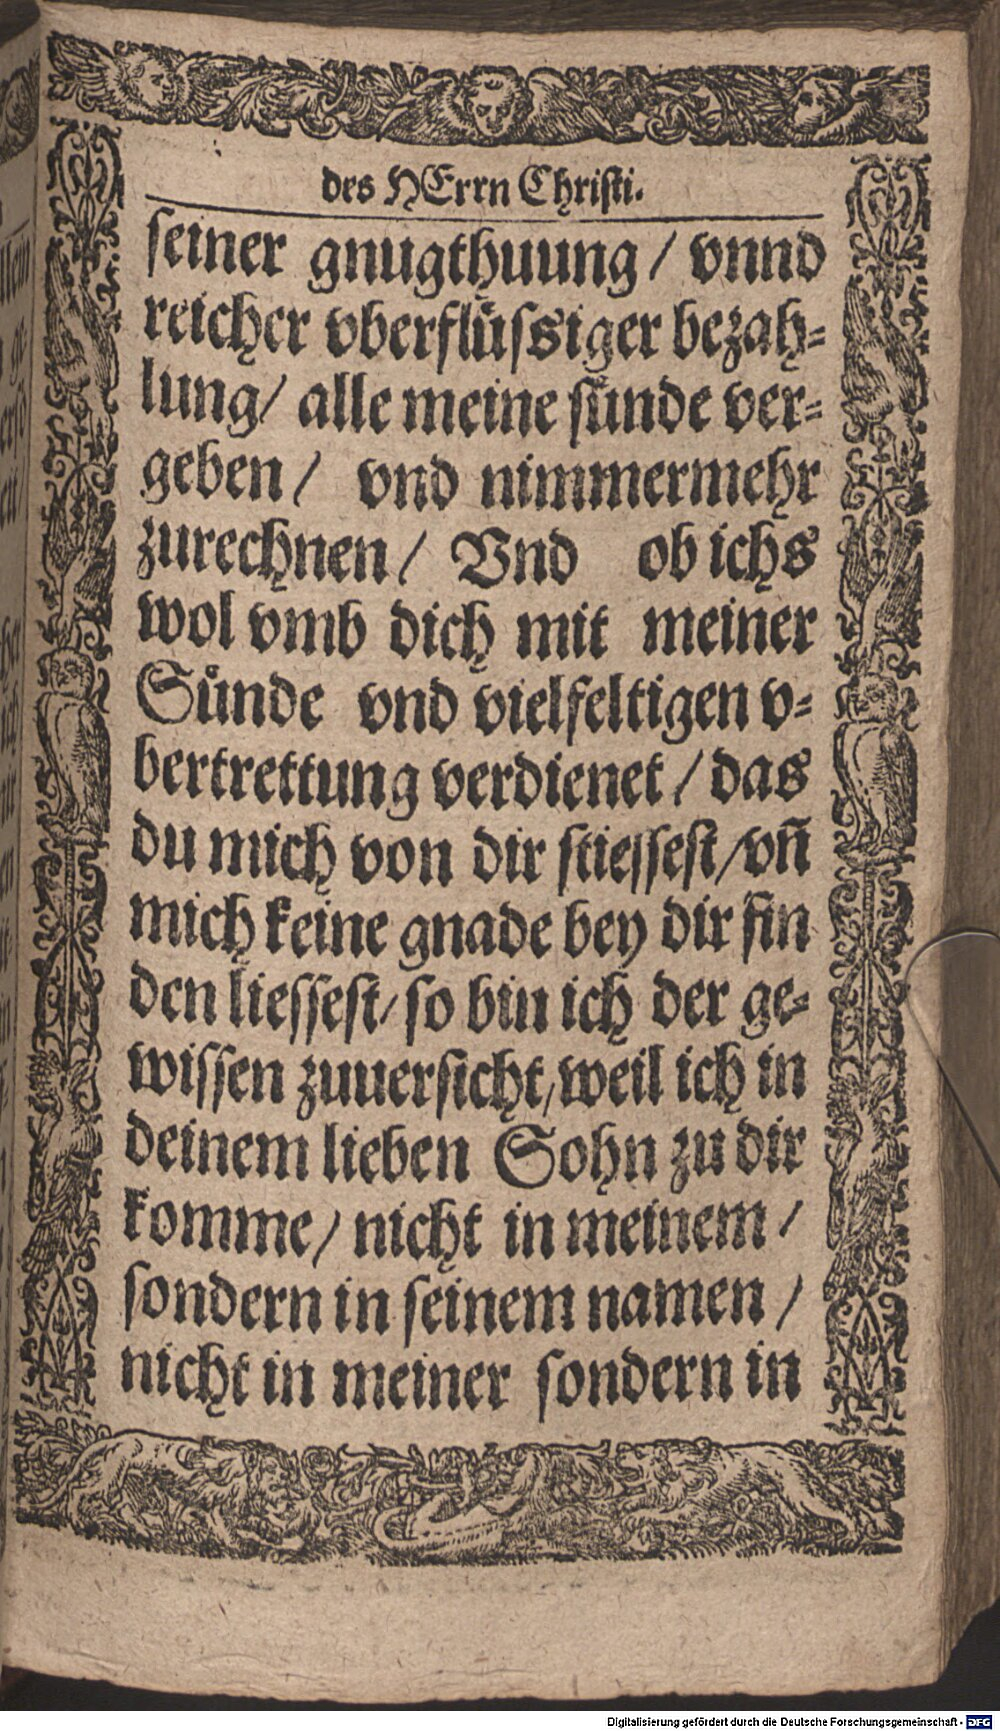 des HErrn Christi.
seiner gnugthuung / vnnd
reicher vberflüssiger bezah-
lung/ alle meine sünde ver-
geben / vnd nimmermehr
zurechnen / Vnd ob ichs
wol vmb dich mit meiner
Sünde vnd vielfeltigen v-
bertrettung verdienet / das
du mich von dir stiessest / vñ
mich keine gnade bey dir fin
den liessest / so bin ich der ge-
wissen zuuersicht, weil ich in
deinem lieben Sohn zu dir
komme / nicht in meinem /
sondern in seinem namen /
nicht in meiner sondern in
Digitalisierung gefördert durch die Deutsche Forschungsgemeinschaft - DFG